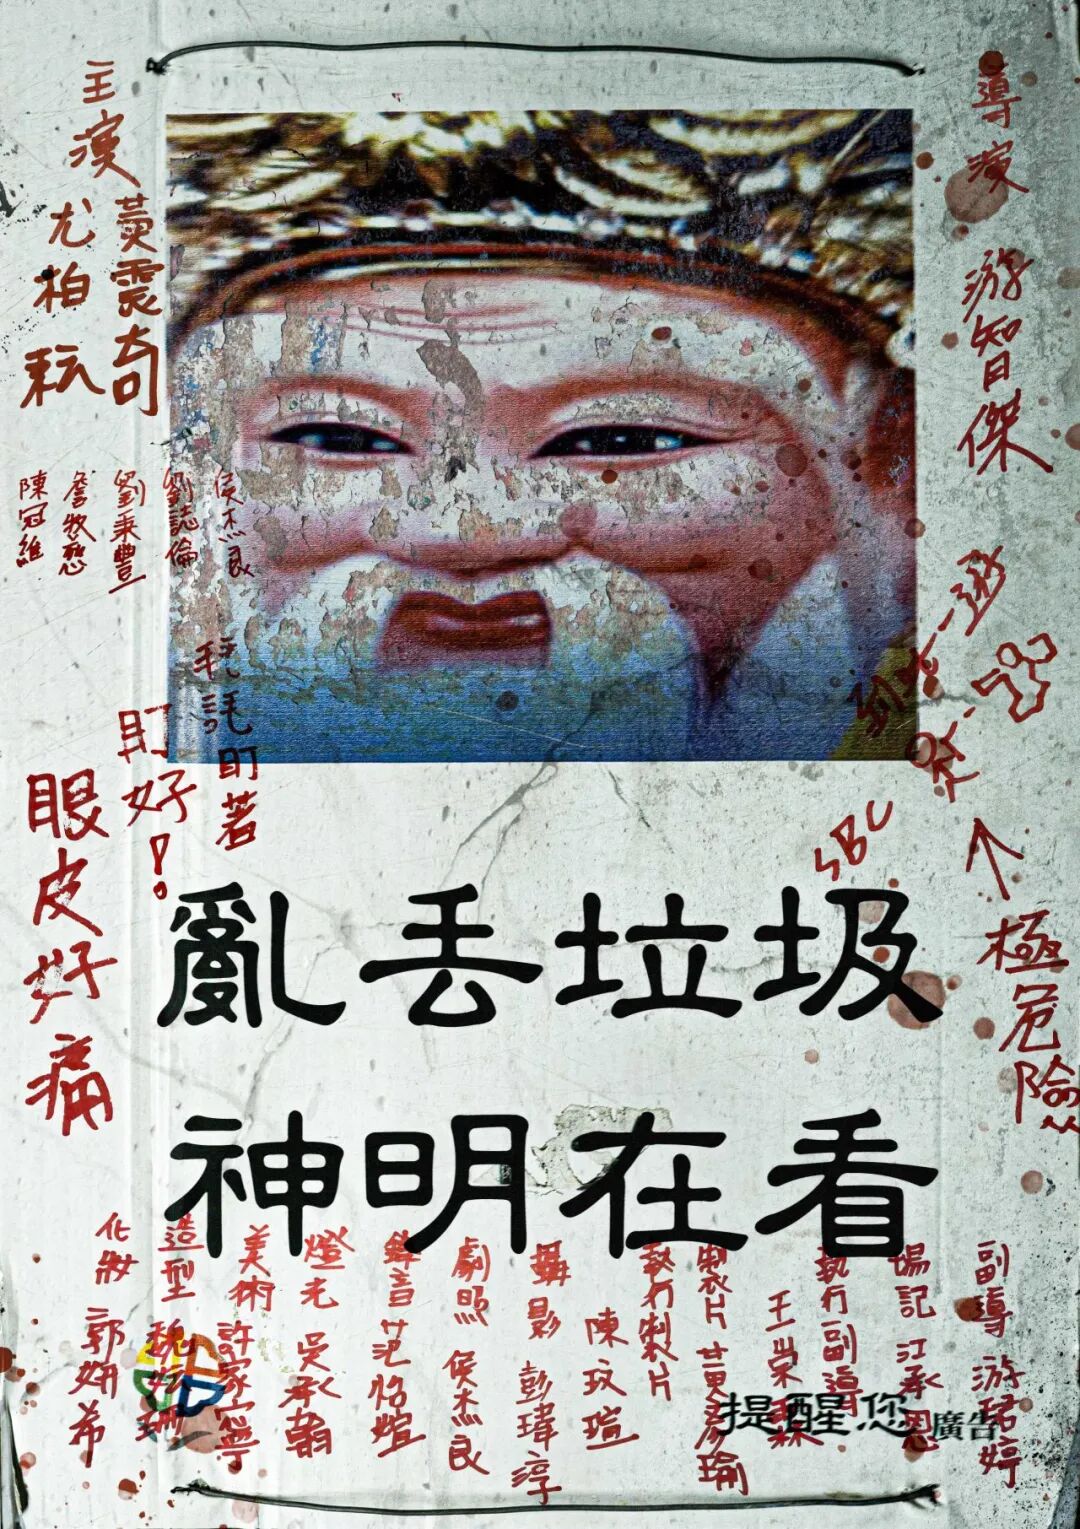 導演 游智傑
主演
黃震奇
尤柏耘
侯杰良
劉誌倫
劉秉豐
詹牧慈
陳冠維
盯著
盯好!
眼皮好痛
SBC
極危險
亂丟垃圾
神明在看
副導 游珺婷
場記 江承恩
執行副導 王崇霖
製片 黃彥瑜
執行製片 陳玟瑄
攝影 彭瑋淳
劇照 侯杰良
錄音 范怡煊
燈光 吳承翰
美術 許家寧
造型
化妝 郭妍希
提醒您 廣告